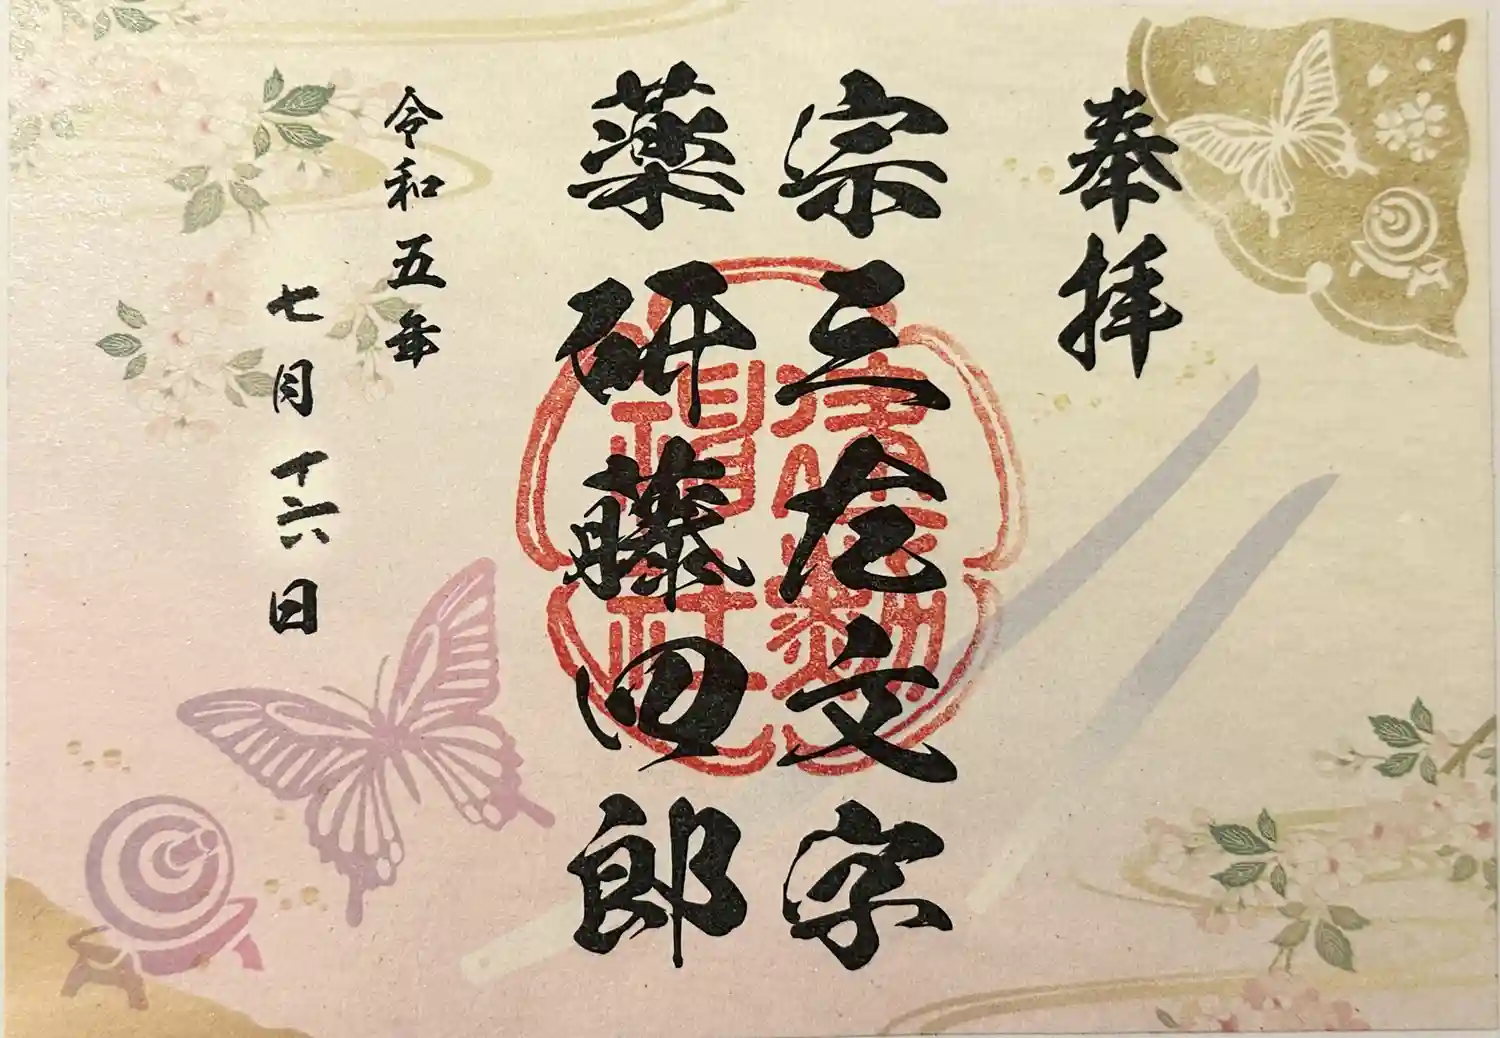 奉拝
宗三左文字
薬研藤四郎
建勲神社
令和五年
七月十六日